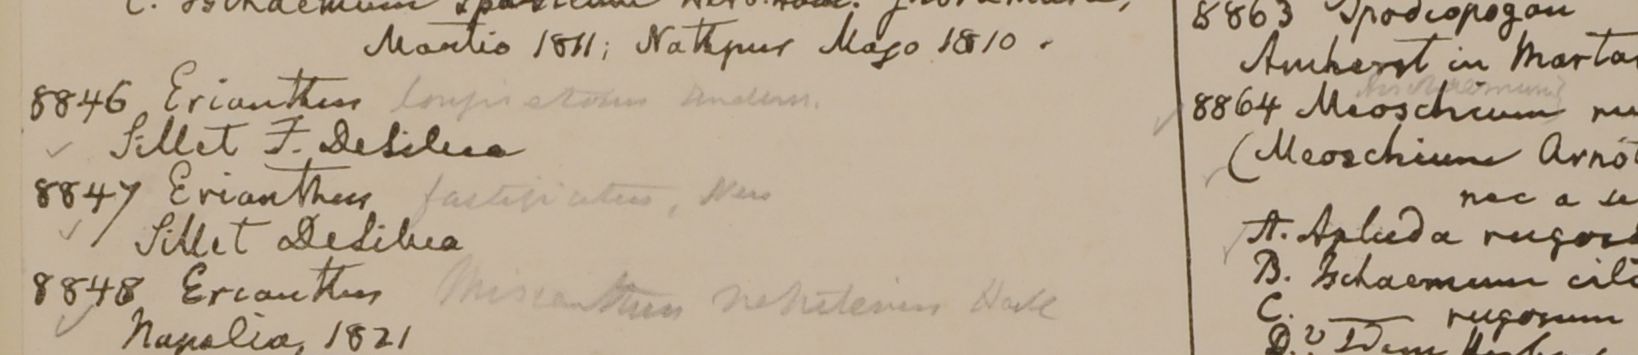 C. Ischaemum
Martio 1811; Nathpur Majo 1810.
8846 Erianthus longisetosus Anders.
Sillet F. DeSilva
8847 Erianthus fastigiatus, Nees
Sillet DeSilva
8848 Erianthus Miscanthus nepalensis Hack
Napalia, 1821
8863 Spodiopogon
Amherst in Marta
8864 Meoschium ru
(Meoschium Arnot
nec a se
A. Apluda rugos
B. Ischaemum cili
C. — rugosum
D. Idem